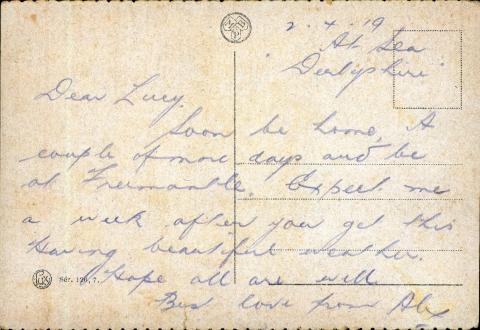 2.4.19
At Sea
"Derbyshire"
Dear Lucy,
Soon be home, A
couple of more days and be
at Fremantle. Expect me
a week after you get this
Having beautiful weather.
Hope all are well
Best love from Alex
Sér. 196, 7.